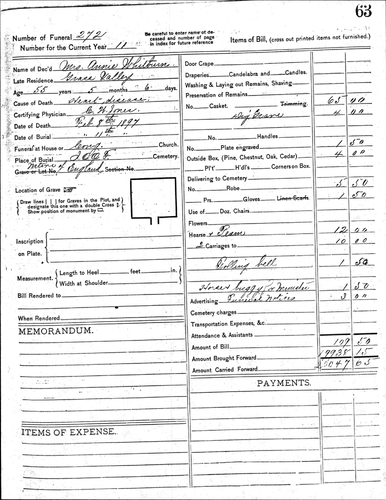 63
Number of Funeral 272
Number for the Current Year 11
Be careful to enter name of deceased and number of page in index for future reference
Items of Bill, (cross out printed items not furnished.)
Name of Dec'd Mrs. Annie Whitburn
Late Residence Grass Valley
Age 55 years 5 months 6 days.
Cause of Death Heart disease
Certifying Physician Jones
Date of Death Feb 8th 1897
Date of Burial " 11th "
Funeral at House or Cong.
Place of Burial I.O.O.F. Cemetery.
Grave or Lot No. Section No.
England
Location of Grave
Draw lines for Graves in the Plot, and designate this one with a double Cross
Show position of monument by
Inscription on Plate.
Measurement. Length to Heel feet in.
Width at Shoulder
Bill Rendered to
When Rendered
MEMORANDUM.
ITEMS OF EXPENSE.
Door Crape
Draperies Candelabra and Candles.
Washing & Laying out Remains, Shaving
Preservation of Remains
No. Casket. Trimming. 65 00
Dig Grave 4 00
No. Handles
No. Plate engraved 1 50
Outside Box (Pine, Chestnut, Oak, Cedar) 4 00
P'lY H'd'l's Corners on Box.
Delivering to Cemetery
No. Robe 5 50
Prs. Gloves Linen Scarfs 1 50
Use of Doz. Chairs
Flowers
Hearse & Team 12 00
2 Carriages to 10 00
Tolling bell 1 50
Horse & buggy for Minister 1 50
Advertising Funeral notices 3 00
Cemetery charges
Transportation Expenses, &c.
Attendance & Assistants
Amount of Bill 109 50
Amount Brought Forward 19938 15
Amount Carried Forward 20047 65
PAYMENTS.